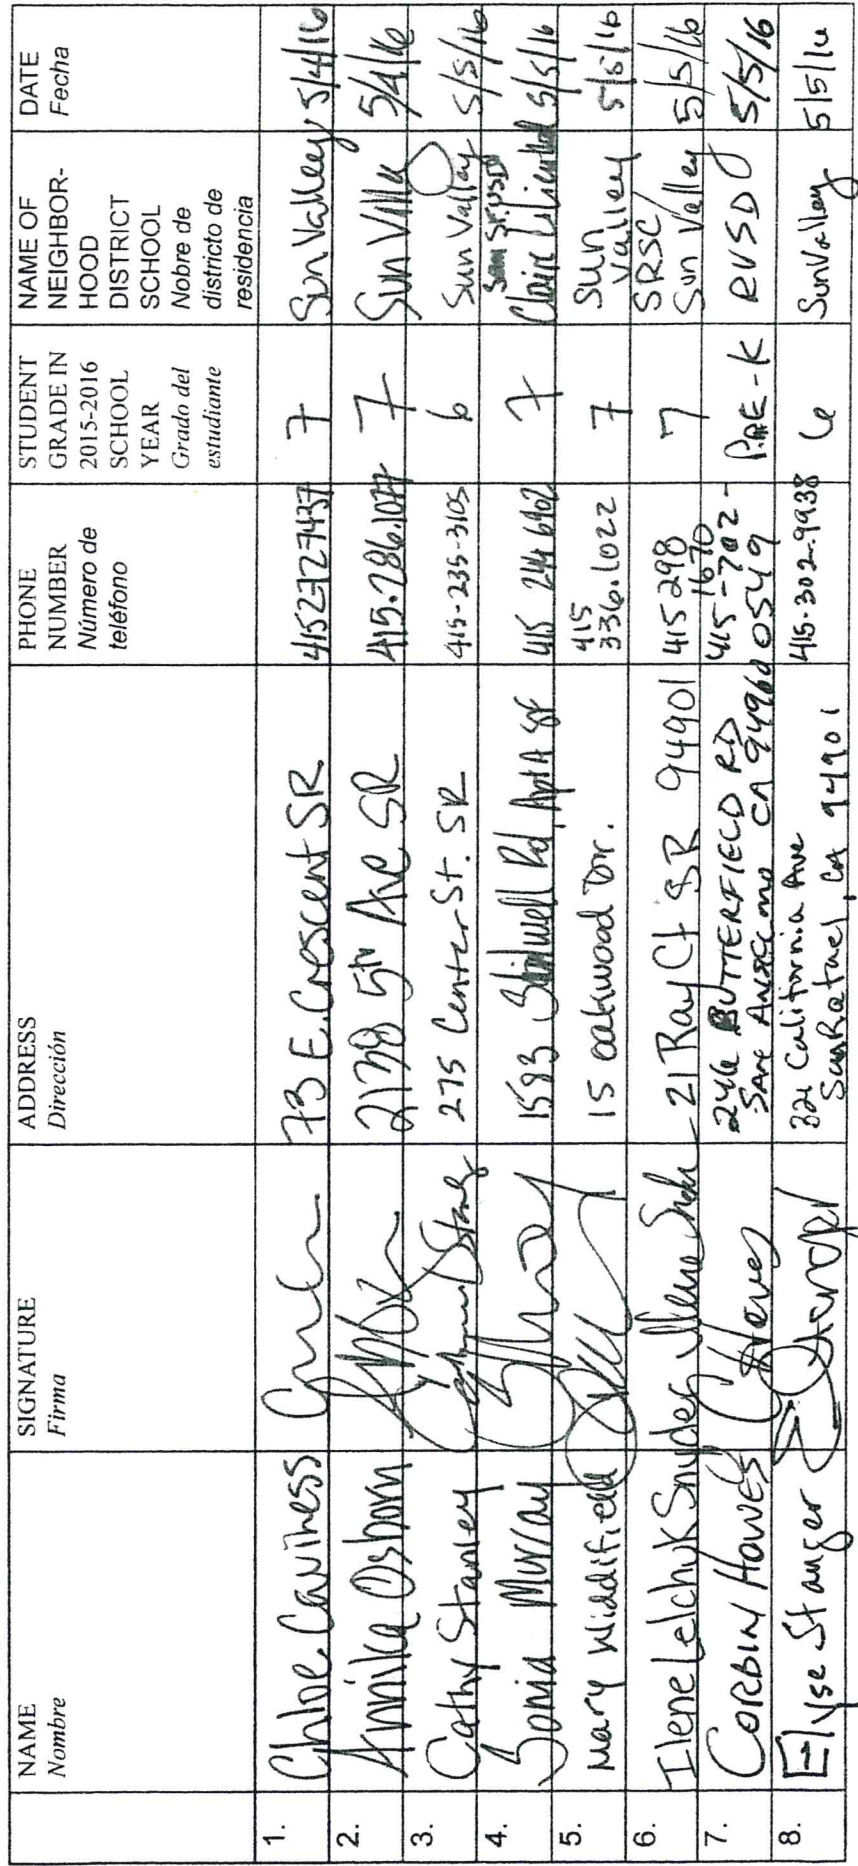 NAME
Nombre
SIGNATURE
Firma
ADDRESS
Dirección
PHONE
NUMBER
Número de
teléfono
STUDENT
GRADE IN
2015-2016
SCHOOL
YEAR
Grado del
estudiante
NAME OF
NEIGHBOR-
HOOD
DISTRICT
SCHOOL
Nobre de
districto de
residencia
DATE
Fecha
1. Chloe Caviness 73 E. Crescent SR 4152727437 7 Sun Valley 5/4/16
2. Annika Osborn 2138 5th Ave SR 415.286.1077 7 Sun Valle 5/4/16
3. Cathy Stanley 275 Center St. SR 415-235-3105 6 Sun Valley 5/5/16
4. Sonia Murray 1583 Rd, Apt A SF 415 244 6902 7 SFUSD
Claire Lilienthal 5/5/16
5. Mary Widdifield 15 oakwood Dr. 415
336.1022 7 Sun
Valley 5/5/16
6. Ilene Lelchuk Snyder 21 Ray Ct SR 94901 415 298
1670 7 SRSC
Sun Valley 5/5/16
7. CORBIN HOWES 246 BUTTERFIELD RD
SAN ANSELMO CA 94960 415-702-
0549 PRE-K RVSD 5/5/16
8. Elyse Stanger 321 California Ave
San Rafael, CA 94901 415.302.9938 6 Sun Valley 5/5/16